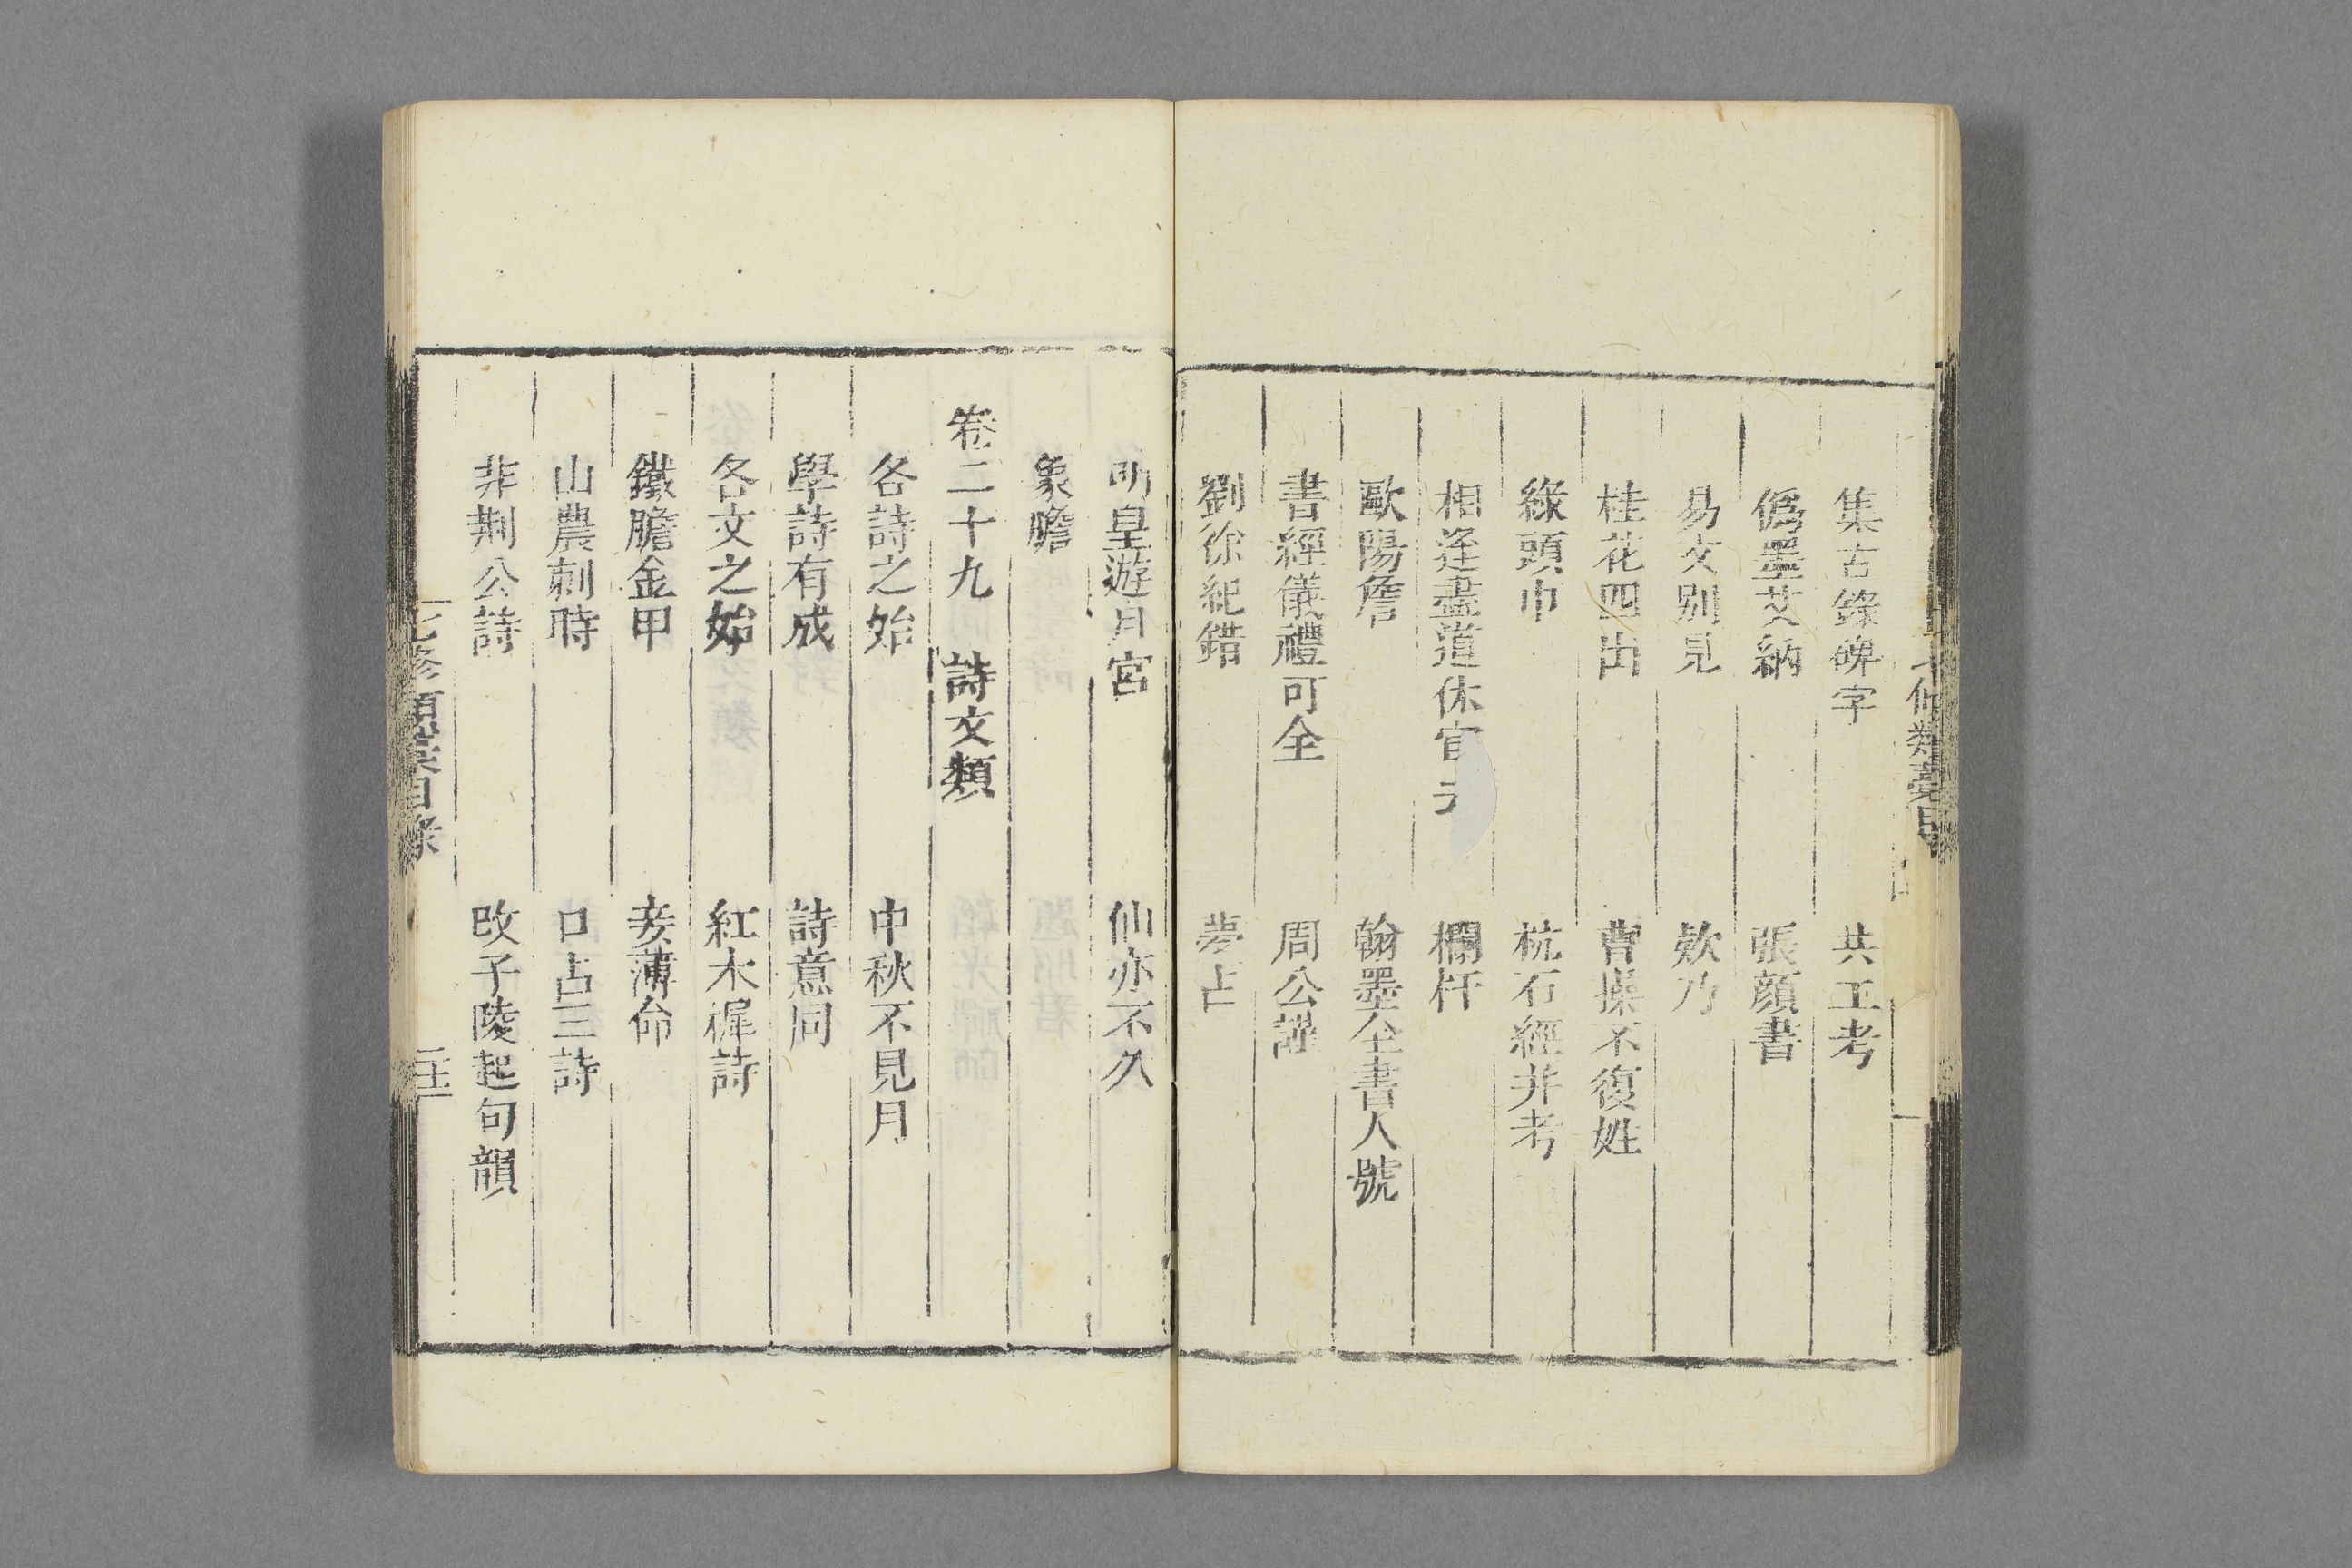 集古錄碑字　共工考
僞墨艾納　張顔書
易文别見　欸乃
桂花四出　曹操不復姓
綠頭巾　杭石經并考
相逢盡道休官　欄杆
歐陽詹　翰墨全書人號
書經儀禮可全　周公謚
劉徐紀錯　夢占
明皇遊月宮　仙亦不久
象膽
卷二十九　詩文類
各詩之始　中秋不見月
學詩有成　詩意同
各文之始　紅木樨詩
鐵膽金甲　妾薄命
山農刺時　口占三詩
非荆公詩　改子陵起句韻
七修類稾目錄